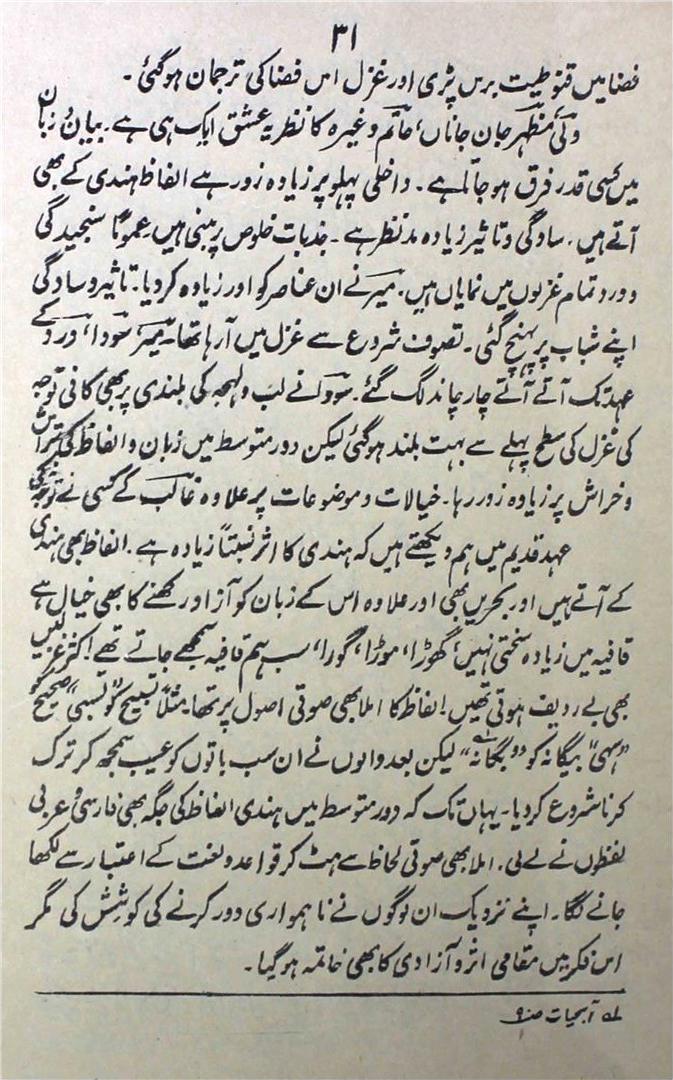 ۳۱
فضا میں قنوطیت برس پڑی اور غزل اس فضا کی ترجمان ہوگئی۔
ولی مظہر جان جاناں، حاتم وغیرہ کا نظریہ عشق ایک ہی ہے۔ بیان و زبان
میں کسی قدر فرق ہو جاتا ہے۔ داخلی پہلو پر زیادہ زور ہے الفاظ ہندی کے بھی
آتے ہیں، سادگی و تاثیر زیادہ مدنظر ہے۔ جذبات خلوص پر مبنی ہیں عموماً سنجیدگی
و درد تمام غزلوں میں نمایاں ہیں۔ میر نے ان عناصر کو اور زیادہ کر دیا۔ تاثیر و سادگی
اپنے شباب پر پہنچ گئی۔ تصوف شروع سے غزل میں آرہا تھا۔ میر، سودا، درد کے
عہد تک آتے آتے چار چاند لگ گئے۔ سودا نے لب و لہجہ کی بلندی پر بھی کافی توجہ
کی غزل کی سطح پہلے سے بہت بلند ہوگئی لیکن دور متوسط میں زبان و الفاظ کی تراش
و خراش پر زیادہ زور رہا۔ خیالات و موضوعات پر علاوہ غالب کے کسی نے توجہ نہ کی
عہد قدیم میں ہم دیکھتے ہیں کہ ہندی کا اثر نسبتاً زیادہ ہے۔ الفاظ بھی ہندی
کے آتے ہیں اور بحریں بھی اور علاوہ اس کے زبان کو آزاد رکھنے کا بھی خیال ہے
قافیہ میں زیادہ سختی نہیں، گھوڑا، موڑا، گورا، سب ہم قافیہ سمجھے جاتے تھے اکثر غزلیں
بھی بے ردیف ہوتی تھیں۔ الفاظ کا املا بھی صوتی اصول پر تھا۔ مثلاً تسبیح کو "تسبی" صحیح کو
"سہی" بیگانہ کو "بگانہ" لیکن بعد والوں نے ان سب باتوں کو عیب سمجھ کر ترک
کرنا شروع کر دیا۔ یہاں تک کہ دور متوسط میں ہندی الفاظ کی جگہ بھی فارسی و عربی
لفظوں نے لے لی۔ املا بھی صوتی لحاظ سے ہٹ کر قواعد و لغت کے اعتبار سے لکھا
جانے لگا۔ اپنے نزدیک ان لوگوں نے ناہمواری دور کرنے کی کوشش کی مگر
اس فکر میں مقامی اثر و آزادی کا بھی خاتمہ ہوگیا۔
لہ آبحیات ص۹